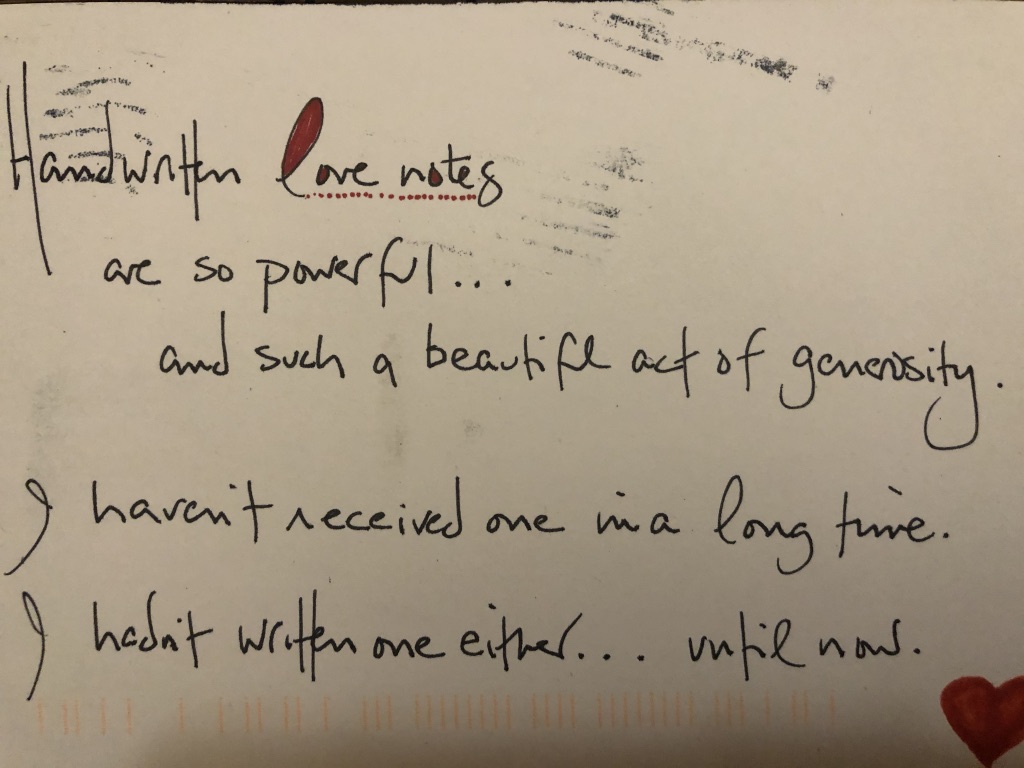 Handwritten love notes
are so powerful...
and such a beautiful act of generosity.
I haven't received one in a long time.
I hadn't written one either... until now.